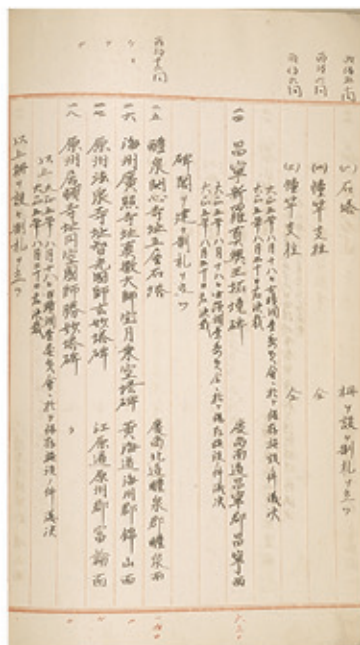 (イ)石塔　柵ヲ設ケ制札ヲ立ツ
(ロ)幢竿支柱　仝
(ハ)幢竿支柱　仝
大正五年八月十八日古蹟調査委員会ニ於テ保存施設ノ件議決
大正五年八月三十日右決裁
一四　昌寧新羅真興王拓境碑　慶尚南道昌寧郡昌寧面
大正五年八月十八日古蹟調査委員会ニ於テ保存施設ノ件議決
大正五年八月三十日右決裁
碑閣ヲ建テ制札ヲ立ツ
一五　醴泉開心寺址五層石塔　慶尚北道醴泉郡醴泉面
一六　海州廣照寺址真澈大師宝月乗空塔碑　黄海道海州郡錦山面
一七　原州法泉寺址智光國師玄妙塔碑　江原道原州郡富論面
一八　原州居頓寺址円空國師勝妙塔碑　〃
以上　大正五年八月十八日古蹟調査委員会ニ於テ保存施設ノ件議決
大正五年八月三十日右決裁
以上柵ヲ設ケ制札ヲ立ツ